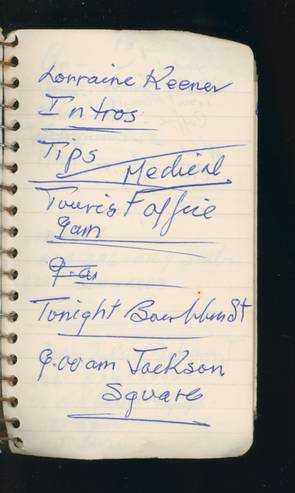 Lorraine Keener
Intros
Tips
Medical
Tourist office
9am
9-a
Tonight Bourbbon St
9.00am Jackson
Square